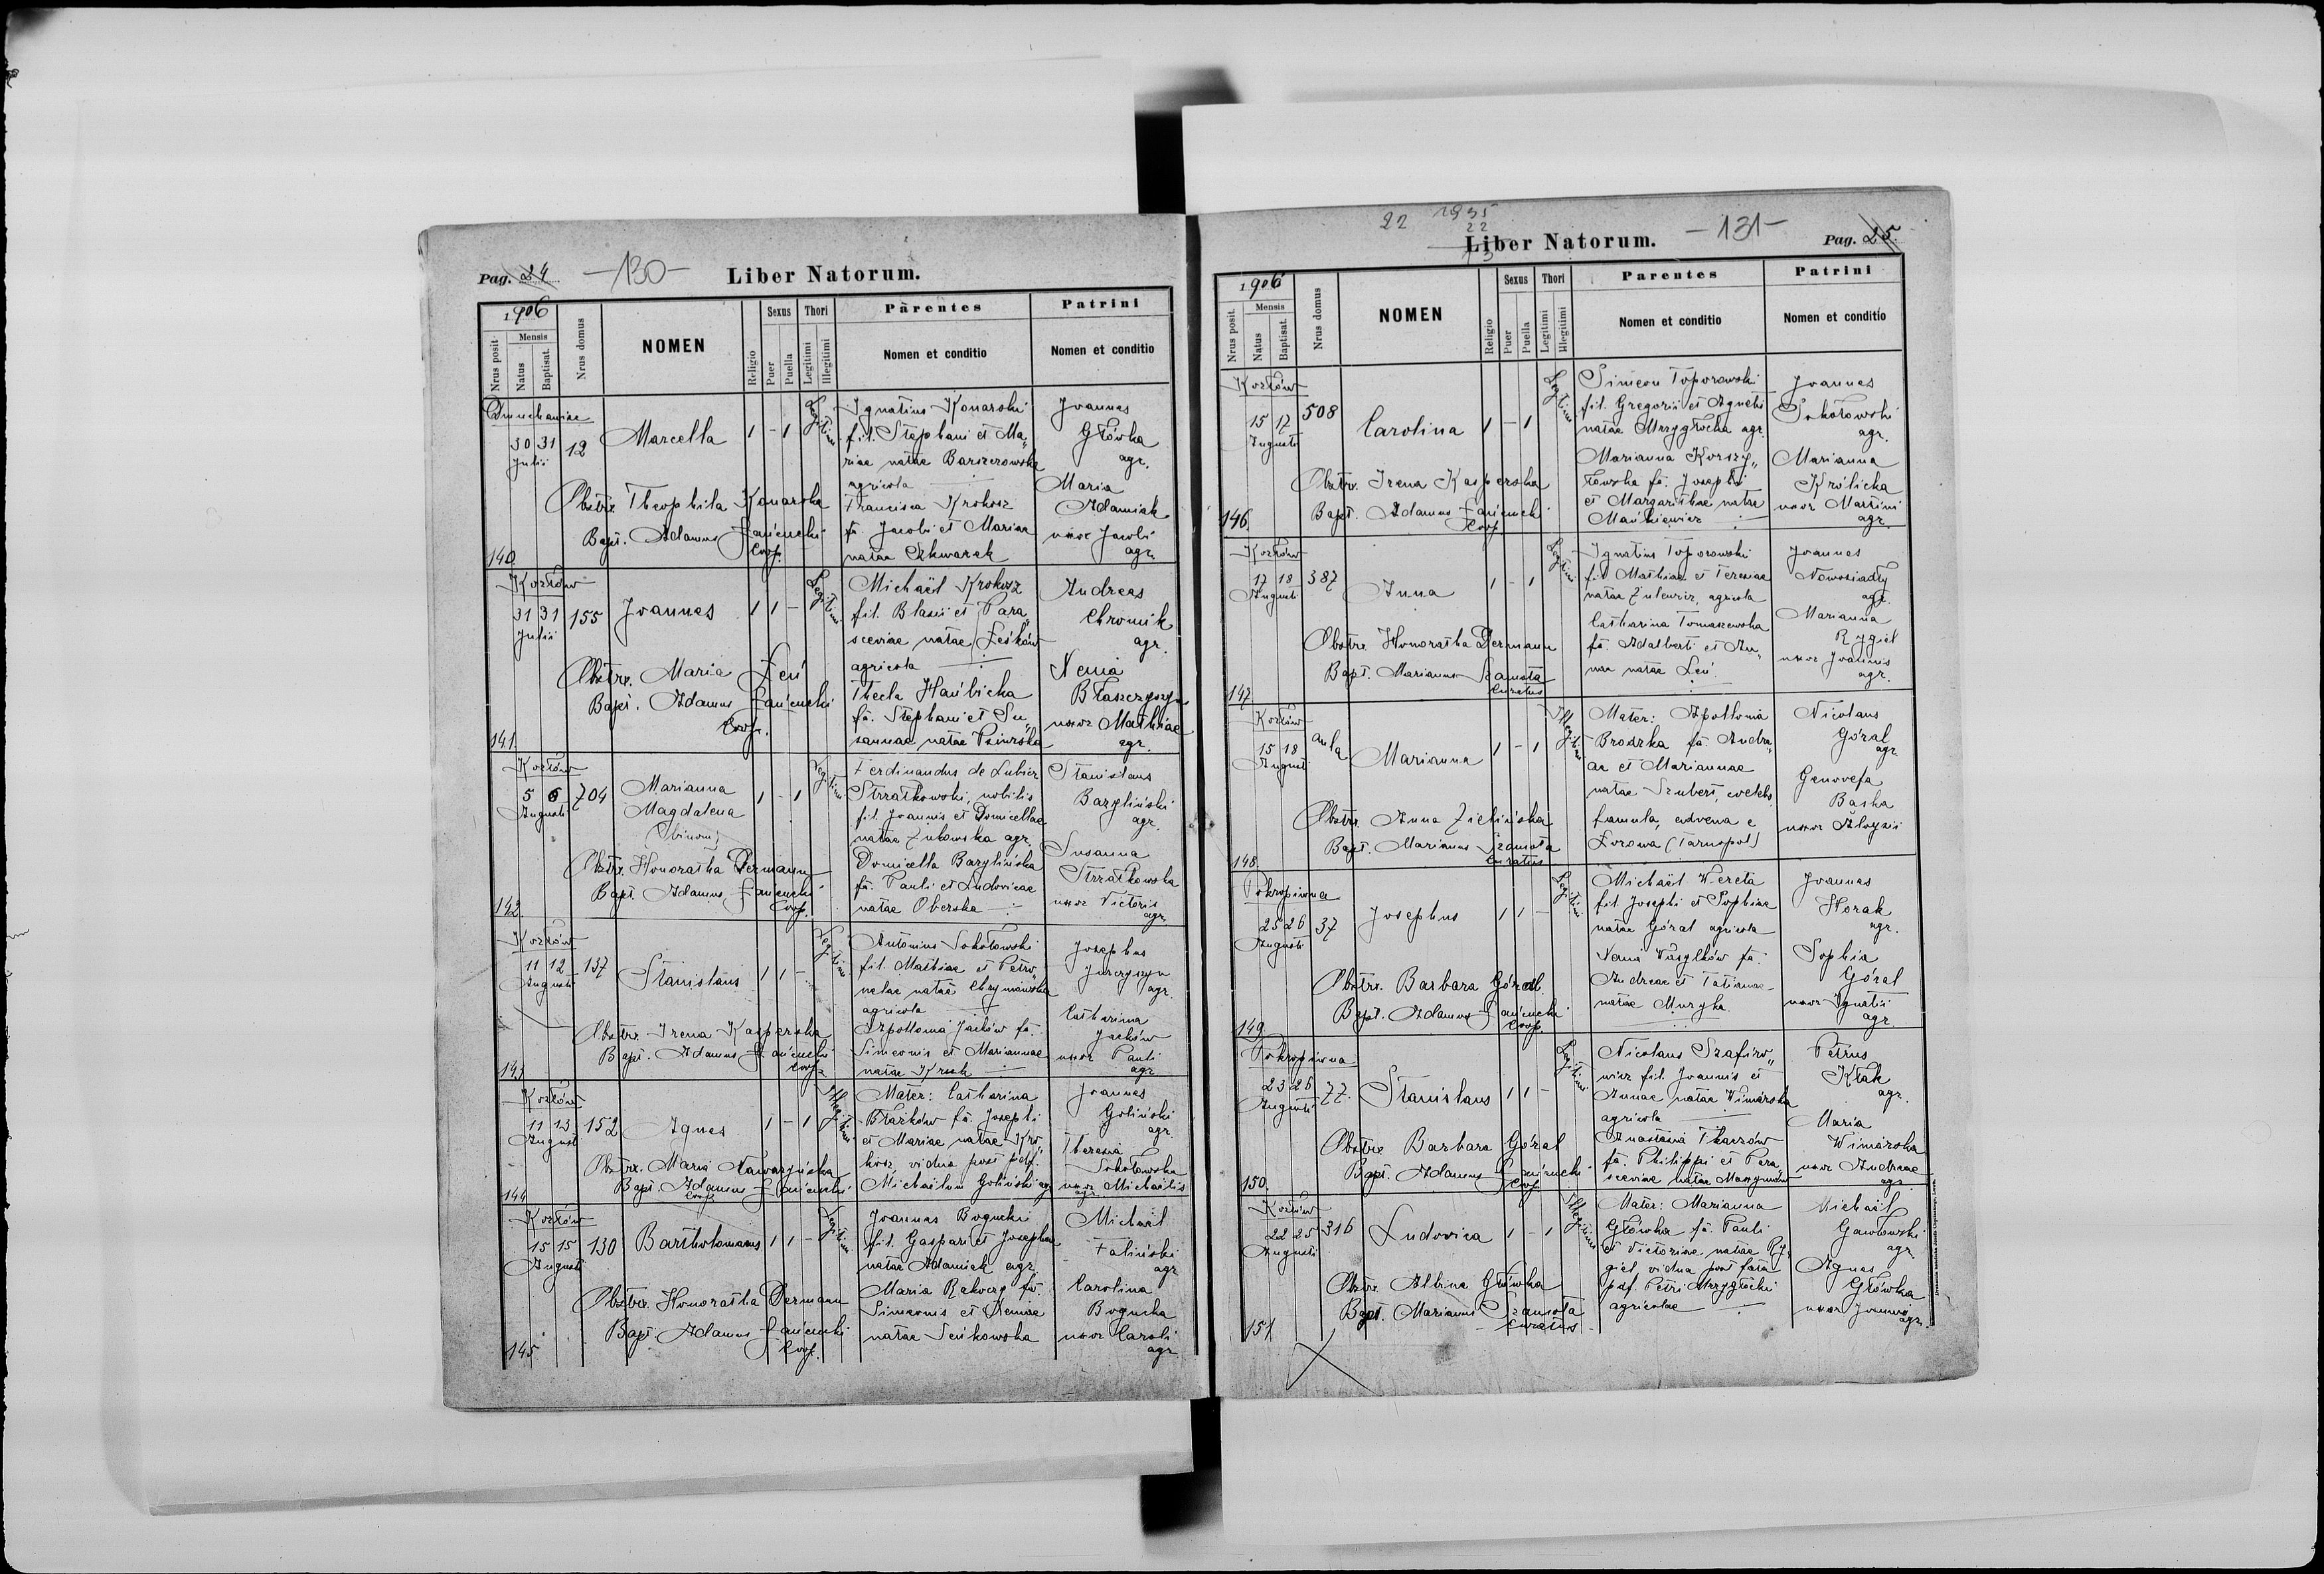 Pag. 24
-130-
Liber Natorum.
1906
Nrus posit
Mensis
Natus
Baptisat.
Nrus domus
NOMEN
Religio
Sexus
Puer
Puella
Thori
Legitimi
Illegitimi
Parentes
Nomen et conditio
Patrini
Nomen et conditio
140
30 31
Julii
12
Marcella
1 - 1
Legitimi
Obstr. Theophila Konarska
Bapt. Adamus Łańcucki
Coop.
Ignatius Konarski
fil. Stephani et Ma„
riae natae Barszczowska
agricola
Francisca Krokosz
fa. Jacobi et Mariae
natae Szkwarek
Joannes
Główka
agr.
Maria
Adamiak
uxor Jacobi
agr.
141
Kozłów
31 31
Julii
155
Joannes
1 1 -
Legitimi
Obstr. Maria Łeń
Bapt. Adamus Łańcucki
Coop.
Michaël Krokosz
fil. Blasii et Para„
sceviae natae Leśków
agricola
Thecla Hańbicka
fa. Stephani et Su„
sannae natae
Andreas
Chromik
agr.
Xenia
Błaszczyszyn
uxor Mathiae
agr.
142
Kozłów
5 6
Augusti
704
Marianna
Magdalena
(binom)
1 - 1
Legitimi
Obstr. Honoratha Dermann
Bapt. Adamus Łańcucki
Coop.
Ferdinandus de Lubicz
Strzałkowski, nobilis
fil. Joannis et Domicellae
natae Żukowska agr.
Domicella Bazylińska
fa. Pauli et Ludovicae
natae Oberska
Stanislaus
Bazyliński
agr.
Susanna
Strzałkowska
uxor Victoris
agr.
143
Kozłów
11 12
Augusti
137
Stanislaus
1 1 -
Legitimi
Obstr. Irena Kasperska
Bapt. Adamus Łańcucki
Coop.
Antonius Sokołowski
fil. Mathiae et Petro„
nelae natae Chrymowska
agricola
Apollonia Jacków fa.
Simeonis et Mariannae
natae Kruk
Josephus
Jurczyszyn
agr.
Catharina
Jacków
uxor Pauli
agr.
144
Kozłów
11 13
August
152
Agnes
1 - 1
Illegitimi
Obstr. Maria Nawarzyńska
Bapt. Adamus Łańcucki
Coop.
Mater: Catharina
Błażków fa. Josephi
et Mariae natae Kro„
kosz, vidua post pdf.
Michaëlem Goliński agr.
Joannes
Goliński
agr.
Theresia
Sokołowska
uxor Michaëlis
agr.
145
Kozłów
15 15
Augusti
130
Bartholomaeus
1 1 -
Legitimi
Obstr. Honoratha Dermann
Bapt. Adamus Łańcucki
Coop.
Joannes Bogucki
fil. Gaspari et Josephae
natae Adamiak agr.
Maria Rakoczy fa.
Simeonis et Xeniae
natae Seńkowska
Michaël
Faliński
agr.
Carolina
Bogucka
uxor Caroli
agr.
22 1935
22
13
Liber Natorum.
-131-
Pag. 25.
1906
Nrus posit.
Mensis
Natus
Baptisat.
Nrus domus
NOMEN
Religio
Sexus
Puer
Puella
Thori
Legitimi
Illegitimi
Parentes
Nomen et conditio
Patrini
Nomen et conditio
146.
Kozłów
15 17
Augusti
508
Carolina
1 - 1
Legitimi
Obstr. Irena Kasperska
Bapt. Adamus Łańcucki
Coop.
Simeon Toporowski
fil. Gregorii et Agnetis
natae Mrzygłocka agr.
Marianna Korzy„
łowska fa. Josephi
et Margarithae natae
Mańkiewicz
Joannes
Sokołowski
agr.
Marianna
Królicka
uxor Martini
agr.
147.
Kozłów
17 18
Augusti
387
Anna
1 - 1
Legitimi
Obstr. Honoratha Dermann
Bapt. Marianus Szamota
Curatus
Ignatius Toporowski
fil. Mathiae et Teresiae
natae, agricola
Catharina Tomaszewska
fa. Adalberti et An„
nae natae Leń
Joannes
Nowosiadły
agr.
Marianna
Rygiel
uxor Joannis
agr.
148.
Kozłów
15 18
August
aula
Marianna
1 - 1
Illegitimi
Obstr. Anna Zielińska
Bapt. Marianus Szamota
Curatus
Mater: Apollonia
Brodzka fa. Andre„
ae et Mariannae
natae Szubert, coelebs
famula, advena e
Łozowa (Tarnopol)
Nicolaus
Góral
agr.
Genovefa
Baska
uxor Aloysii
149.
Pokropiwna
25 26
Augusti
37
Josephus
1 1 -
Legitimi
Obstr. Barbara Góral
Bapt. Adamus Łańcucki
Coop.
Michaël Wereta
fil. Josephi et Sophiae
natae Góral agricola
Xenia Wasylków fa.
Andreae et Tatianae
natae Muzyka
Joannes
Horak
agr.
Sophia
Góral
uxor Ignatii
agr.
150.
Pokropiwna
23 26
Augusti
77.
Stanislaus
1 1 -
Legitimi
Obstr. Barbara Góral
Bapt. Adamus Łańcucki
Coop.
Nicolaus Szafiro„
wicz fil. Joannis et
Annae natae Wimarska
agricola
Anastasia Tkaczów
fa. Philippi et Para„
sceviae natae Maxymów
Petrus
Kłak
agr.
Maria
Wimarska
uxor Andreae
agr.
151.
Kozłów
22 25
Augusti
316
Ludovica
1 - 1
Illegitimi
Obstr. Albina Główka
Bapt. Marianus Szamota
Curatus
Mater: Marianna
Główka fa. Pauli
et Victoriae natae Ry„
giel, vidua post fata
pdf. Petri Mrzygłocki
agricolae
Michaël
Gawłowski
agr.
Agnes
Główka
uxor Joannis
agr.